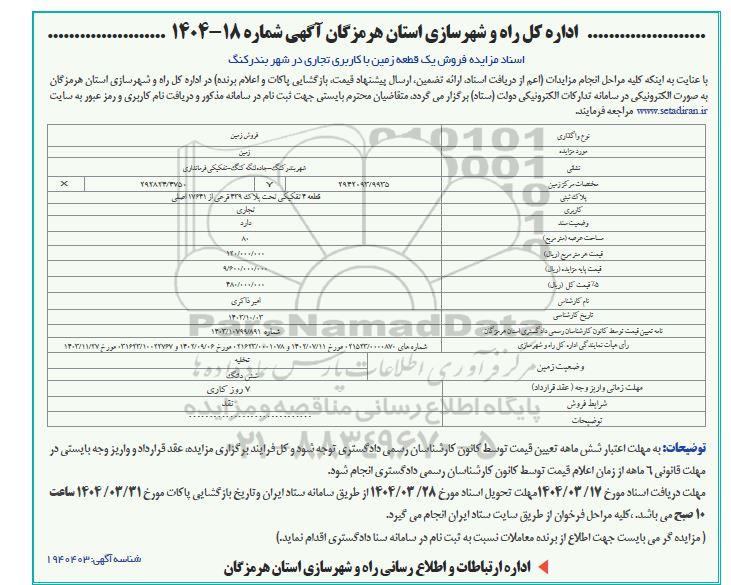 ...................... اداره کل راه و شهرسازی استان هرمزگان آگهی شماره ۱۸-۱۴۰۴ ......................
اسناد مزایده فروش یک قطعه زمین با کاربری تجاری در شهر بندرکنگ
با عنایت به اینکه کلیه مراحل انجام مزایدات (اعم از دریافت اسناد، ارائه تضمین، ارسال پیشنهاد قیمت، بازگشایی پاکات و اعلام برنده) در اداره کل راه و شهرسازی استان هرمزگان
به صورت الکترونیکی در سامانه تدارکات الکترونیکی دولت (ستاد) برگزار می گردد، متقاضیان محترم بایستی جهت ثبت نام در سامانه مذکور و دریافت نام کاربری و رمز عبور به سایت
www.setadiran.ir مراجعه فرمایند.
نوع واگذاری فروش زمین
مورد مزایده زمین
نشانی شهر بندر کنگ-جاده لنگه کنگ-تفکیکی فرمانداری
مختصات مرکز زمین ۲۹۴۲۰۹۳/۹۹۳۵ Y ۲۹۲۸۲۴/۴۷۵۰ X
پلاک ثبتی قطعه ۴ تفکیکی تحت پلاک ۴۳۹ فرعی از ۱۷۶۴۱ اصلی
کاربری تجاری
وضعیت سند دارد
مساحت عرصه (متر مربع) ۸۰
قیمت هر متر مربع (ریال) ۱۲۰/۰۰۰/۰۰۰
قیمت پایه مزایده (ریال) ۹/۶۰۰/۰۰۰/۰۰۰
۵٪ قیمت کل (ریال) ۴۸۰/۰۰۰/۰۰۰
نام کارشناس امیر ذاکری
تاریخ کارشناسی ۱۴۰۳/۱۰/۰۳
نامه تعیین قیمت توسط کانون کارشناسان رسمی دادگستری استان هرمزگان شماره ۱۴۰۳/۱۰۷۹۹/۸۹۱
رأی هیأت نمایندگی اداره کل راه و شهرسازی شماره های ۰۲۱۵۳۳/۰۰۰۰۸۷۰ مورخ ۱۴۰۲/۰۷/۱۱ و ۰۲۱۶۲۳/۰۰۰۱۰۷۸ مورخ ۱۴۰۲/۰۹/۰۶ و ۰۳۱۶۲۳/۱۰۰۲۲۷۶۷ مورخ ۱۴۰۳/۱۱/۲۷
وضعیت زمین تخلیه
شش دانگ
مهلت زمانی واریز وجه (عقد قرارداد) ۷ روز کاری
شرایط فروش نقد
توضیحات ............................
توضیحات: به مهلت اعتبار شش ماهه تعیین قیمت توسط کانون کارشناسان رسمی دادگستری توجه شود و کل فرایند برگزاری مزایده، عقد قرارداد و واریز وجه بایستی در
مهلت قانونی ۶ ماهه از زمان اعلام قیمت توسط کانون کارشناسان رسمی دادگستری انجام شود.
مهلت دریافت اسناد مورخ ۱۴۰۴/۰۳/۱۷ مهلت تحویل اسناد مورخ ۱۴۰۴/۰۳/۲۸ از طریق سامانه ستاد ایران و تاریخ بازگشایی پاکات مورخ ۱۴۰۴/۰۳/۳۱ ساعت
۱۰ صبح می باشد. ،کلیه مراحل فرخوان از طریق سایت ستاد ایران انجام می گیرد.
( مزایده گر می بایست جهت اطلاع از برنده معاملات نسبت به ثبت نام در سامانه سنا دادگستری اقدام نماید.)
شناسه آگهی: ۱۹۴۰۴۰۳
اداره ارتباطات و اطلاع رسانی راه و شهرسازی استان هرمزگان
ParsNamadData
مرکز فرآوری اطلاعات پارس نماد داده ها
پایگاه اطلاع رسانی مناقصه و مزایده
۰۲۱-۸۸۳۴۹۶۷۰-۵